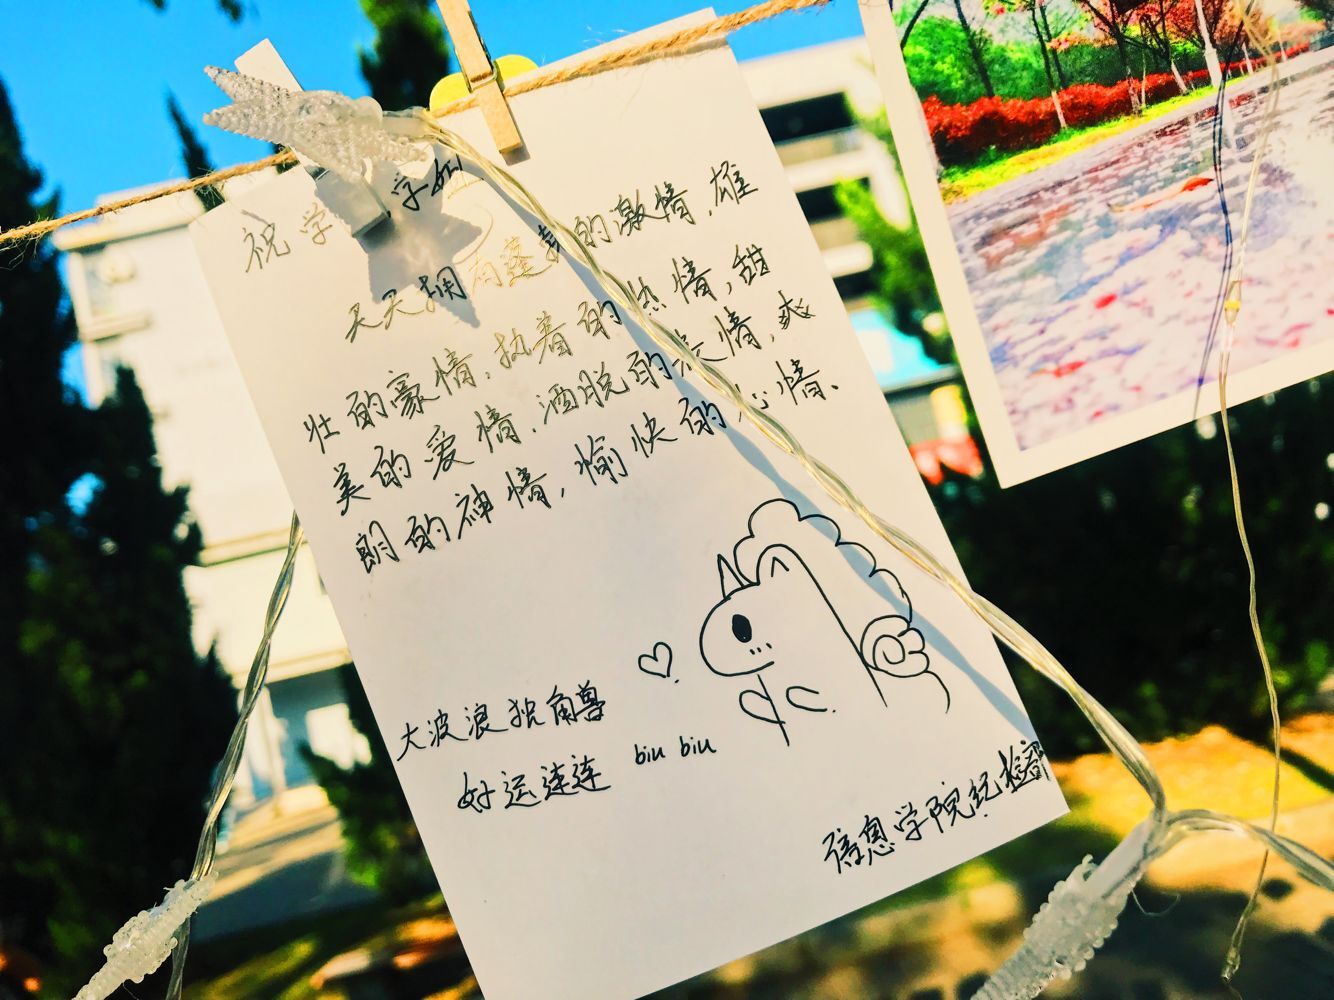 祝学 学妹
天天拥有蓬勃的激情，雄
壮的豪情、执着的热情，甜
美的爱情、洒脱的表情，爽
朗的神情，愉快的心情、
大波浪独角兽
好运连连 biu biu
信息学院纪检部